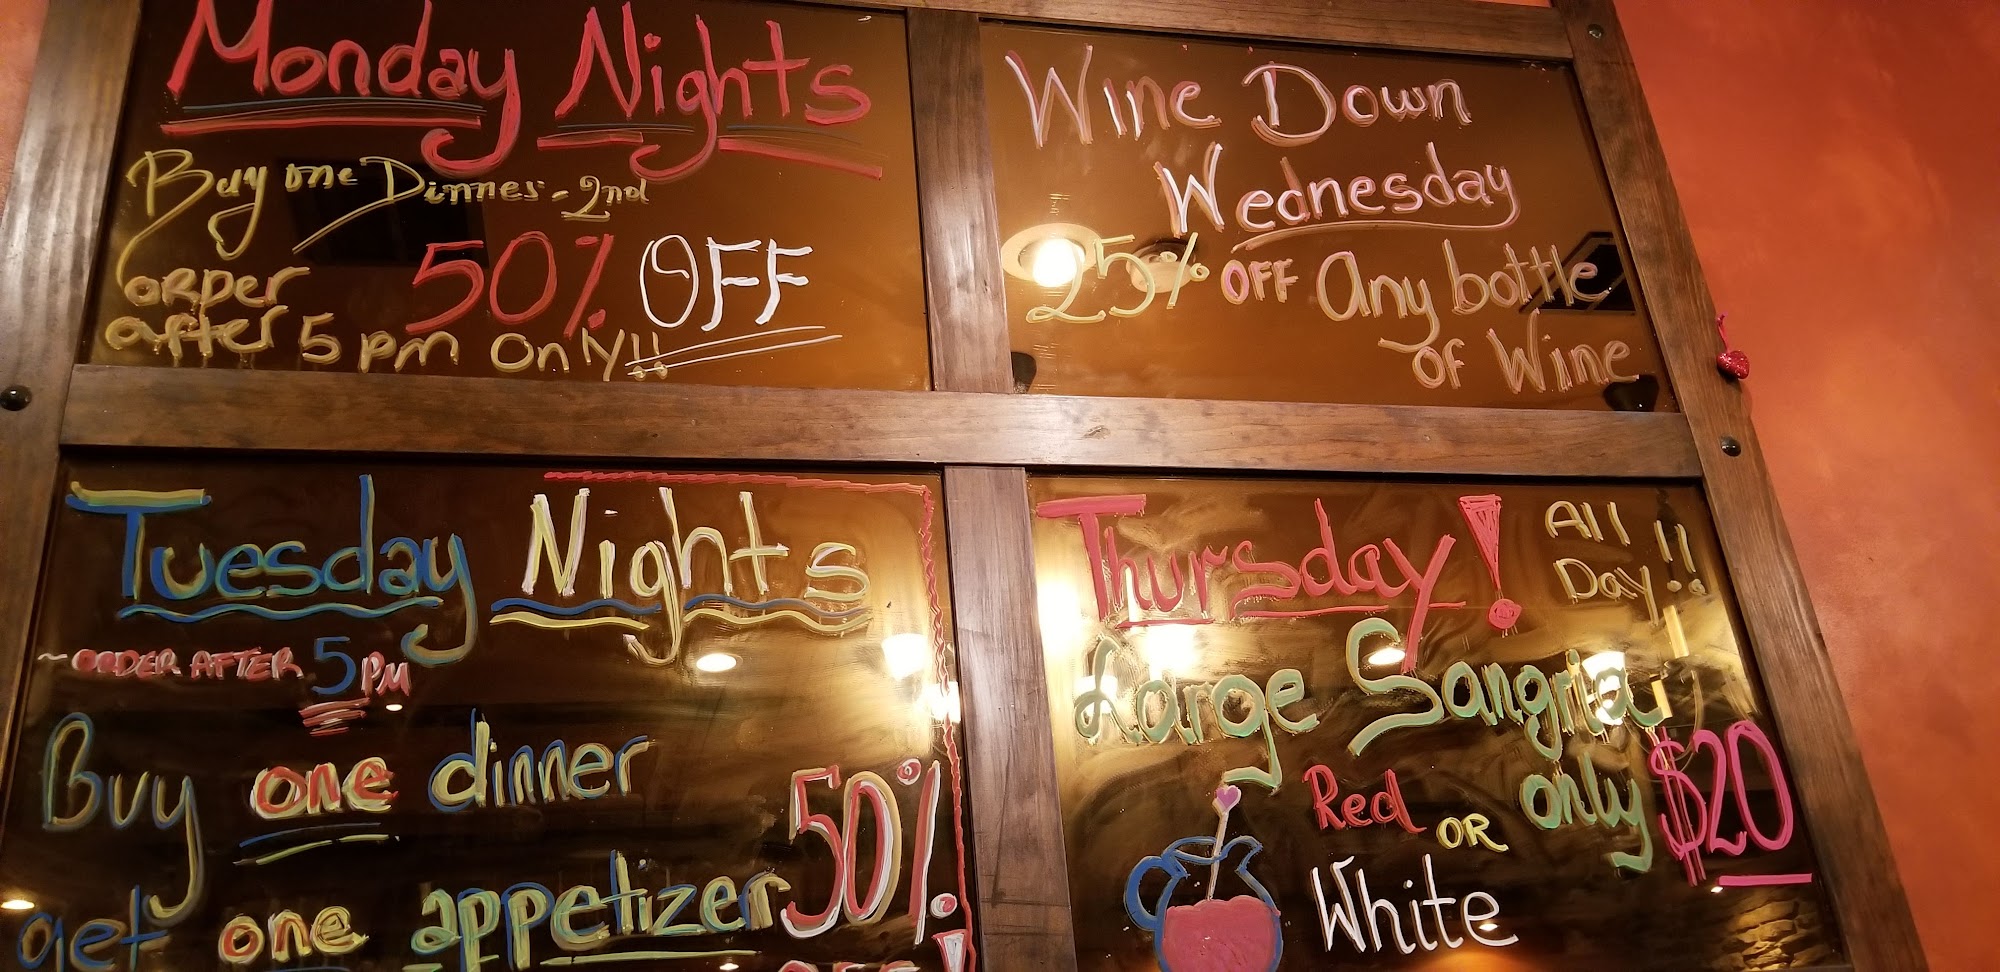 Monday Nights
Buy one Dinner - 2nd
50% OFF
orDer
after 5 pm Only!!
Wine Down
Wednesday
25% OFF Any bottle
of Wine
Tuesday Nights
~ ORDER AFTER 5 PM
Buy one dinner
get one appetizer 50%
OFF!
Thursday! All
Day!!
Large Sangria
only $20
Red OR
White